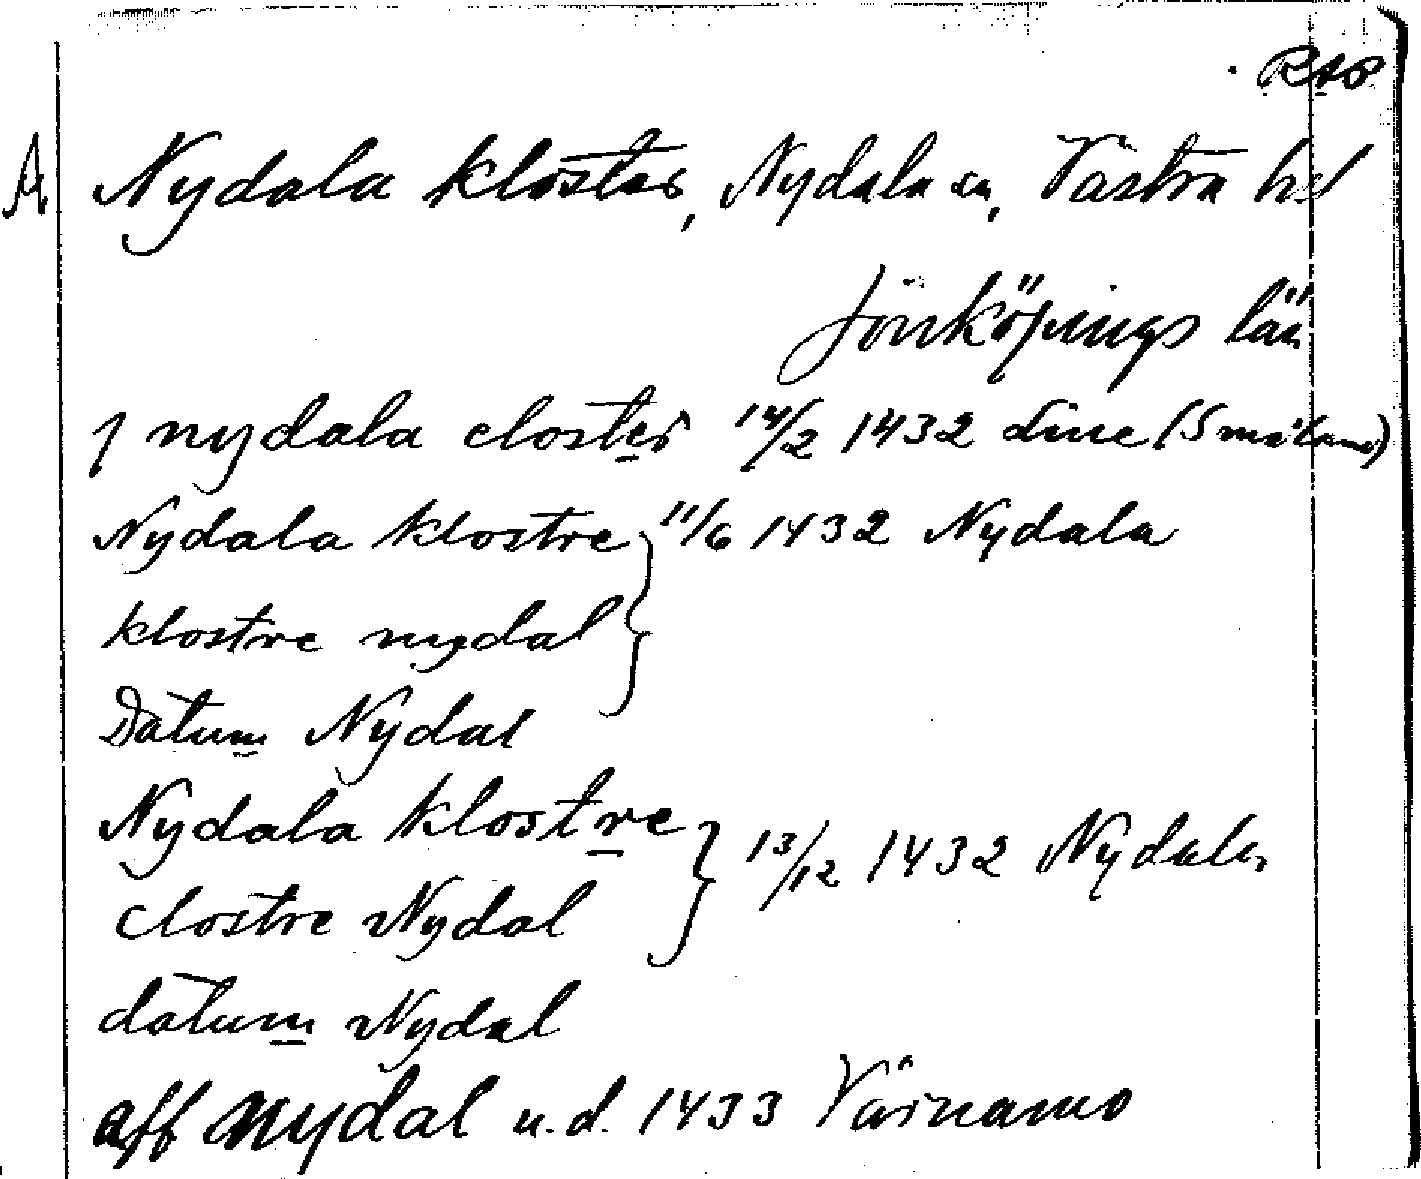 RAP
A Nydala kloster, Nydala sn, Västra hd
Jönköpings län
j nydala closter 14/2 1432 dine (Småland)
Nydala klostre } 11/6 1432 Nydala
klostre nydal
Datum Nydal
Nydala klostre } 13/12 1432 Nydala
clostre Nydal
datum Nydal
aff nydal u.d. 1433 Värnamo